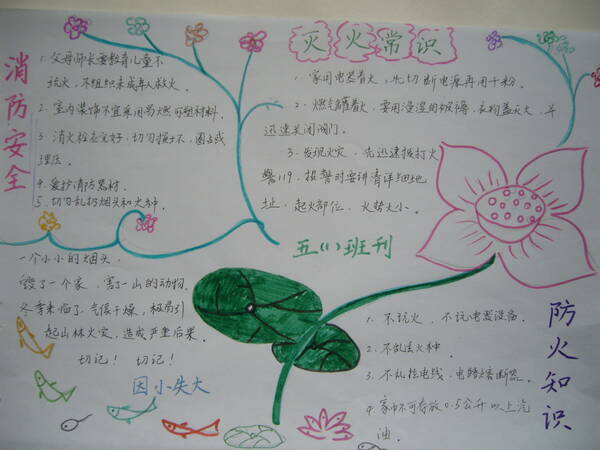 消防安全
1. 父母师长要教育儿童不
玩火，不组织未成年人救火。
2. 室内装饰不宜采用易燃可塑材料。
3. 消火栓应完好，切勿损坏、圈占或
埋压。
4. 爱护消防器材。
5. 切勿乱扔烟头和火种。
灭火常识
1. 家用电器着火，先切断电源再用干粉。
2. 燃气罐着火，要用浸湿的被褥、衣物盖灭火，并
迅速关闭阀门。
3. 发现火灾，先迅速拨打火
警119，报警时要讲清详细地
址、起火部位、火势大小。
五(1)班刊
一个小小的烟头，
毁了一个家，害了一山的动物。
冬季来临了，气候干燥，极易引
起山林火灾，造成严重后果。
切记！ 切记！
因小失大
防火知识
1. 不玩火、不玩电器设备。
2. 不乱丢火种。
3. 不乱接电线，电路熔断器。
4. 家中不可存放0.5公升以上汽
油。